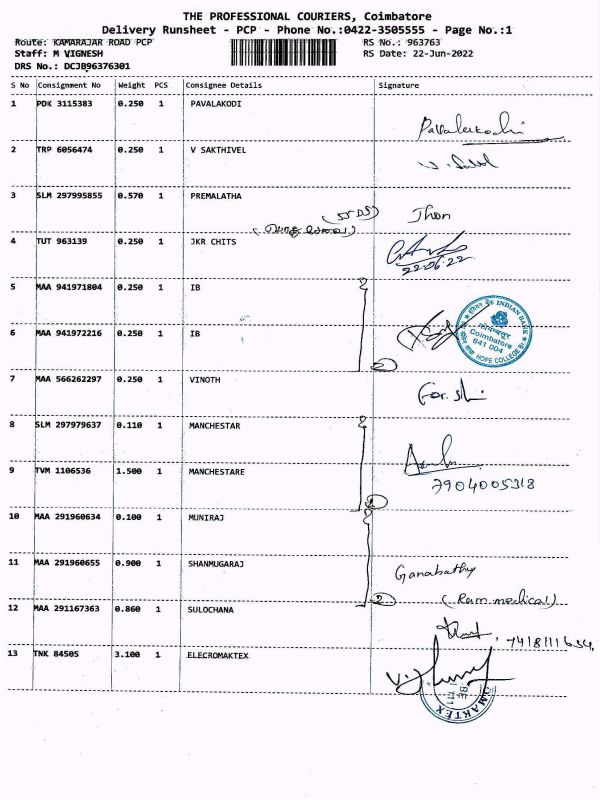 THE PROFESSIONAL COURIERS, Coimbatore
Delivery Runsheet - PCP - Phone No.:0422-3505555 - Page No.:1
Route: KAMARAJAR ROAD PCP RS No.: 963763
Staff: M VIGNESH RS Date: 22-Jun-2022
DRS No.: DCJB96376301
S No Consignment No Weight PCS Consignee Details Signature
1 PDK 3115383 0.250 1 PAVALAKODI
Pavalakodi
2 TRP 6056474 0.250 1 V SAKTHIVEL
3 SLM 297995855 0.570 1 PREMALATHA
Jhon
4 TUT 963139 0.250 1 JKR CHITS
22.06.22
5 MAA 941971804 0.250 1 IB
INDIAN BANK
Coimbatore
641 004
HOPE COLLEGE
6 MAA 941972216 0.250 1 IB
2
7 MAA 566262297 0.250 1 VINOTH
8 SLM 297979637 0.110 1 MANCHESTAR
9 TVM 1106536 1.500 1 MANCHESTARE
7904005318
10 MAA 291960634 0.100 1 MUNIRAJ
11 MAA 291960655 0.900 1 SHANMUGARAJ
Ganabathy
2 (Ram medical)
12 MAA 291167363 0.860 1 SULOCHANA
7418111634
13 TNK 84505 3.100 1 ELECROMAKTEX
OMAKTEX